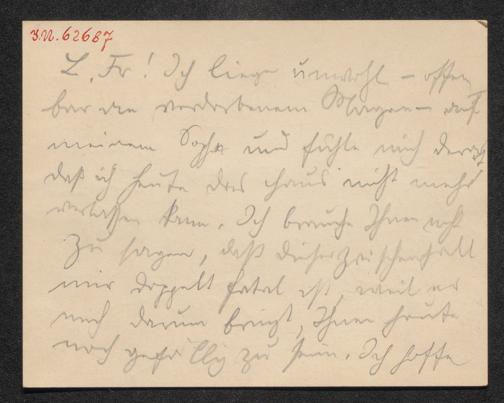 I.N. 62687
L. Fr! Ich liege unwohl – offen
bar an verdorbenem Magen – auf
meinem Sopha und fühle mich derart
daß ich heute das Haus nicht mehr
verlassen kann. Ich brauche Ihnen nicht
zu sagen, daß dieser Zwischenfall
mir doppelt fatal ist, weil er
mich darum bringt, Ihnen heute
noch gefällig zu sein. Ich hoffe